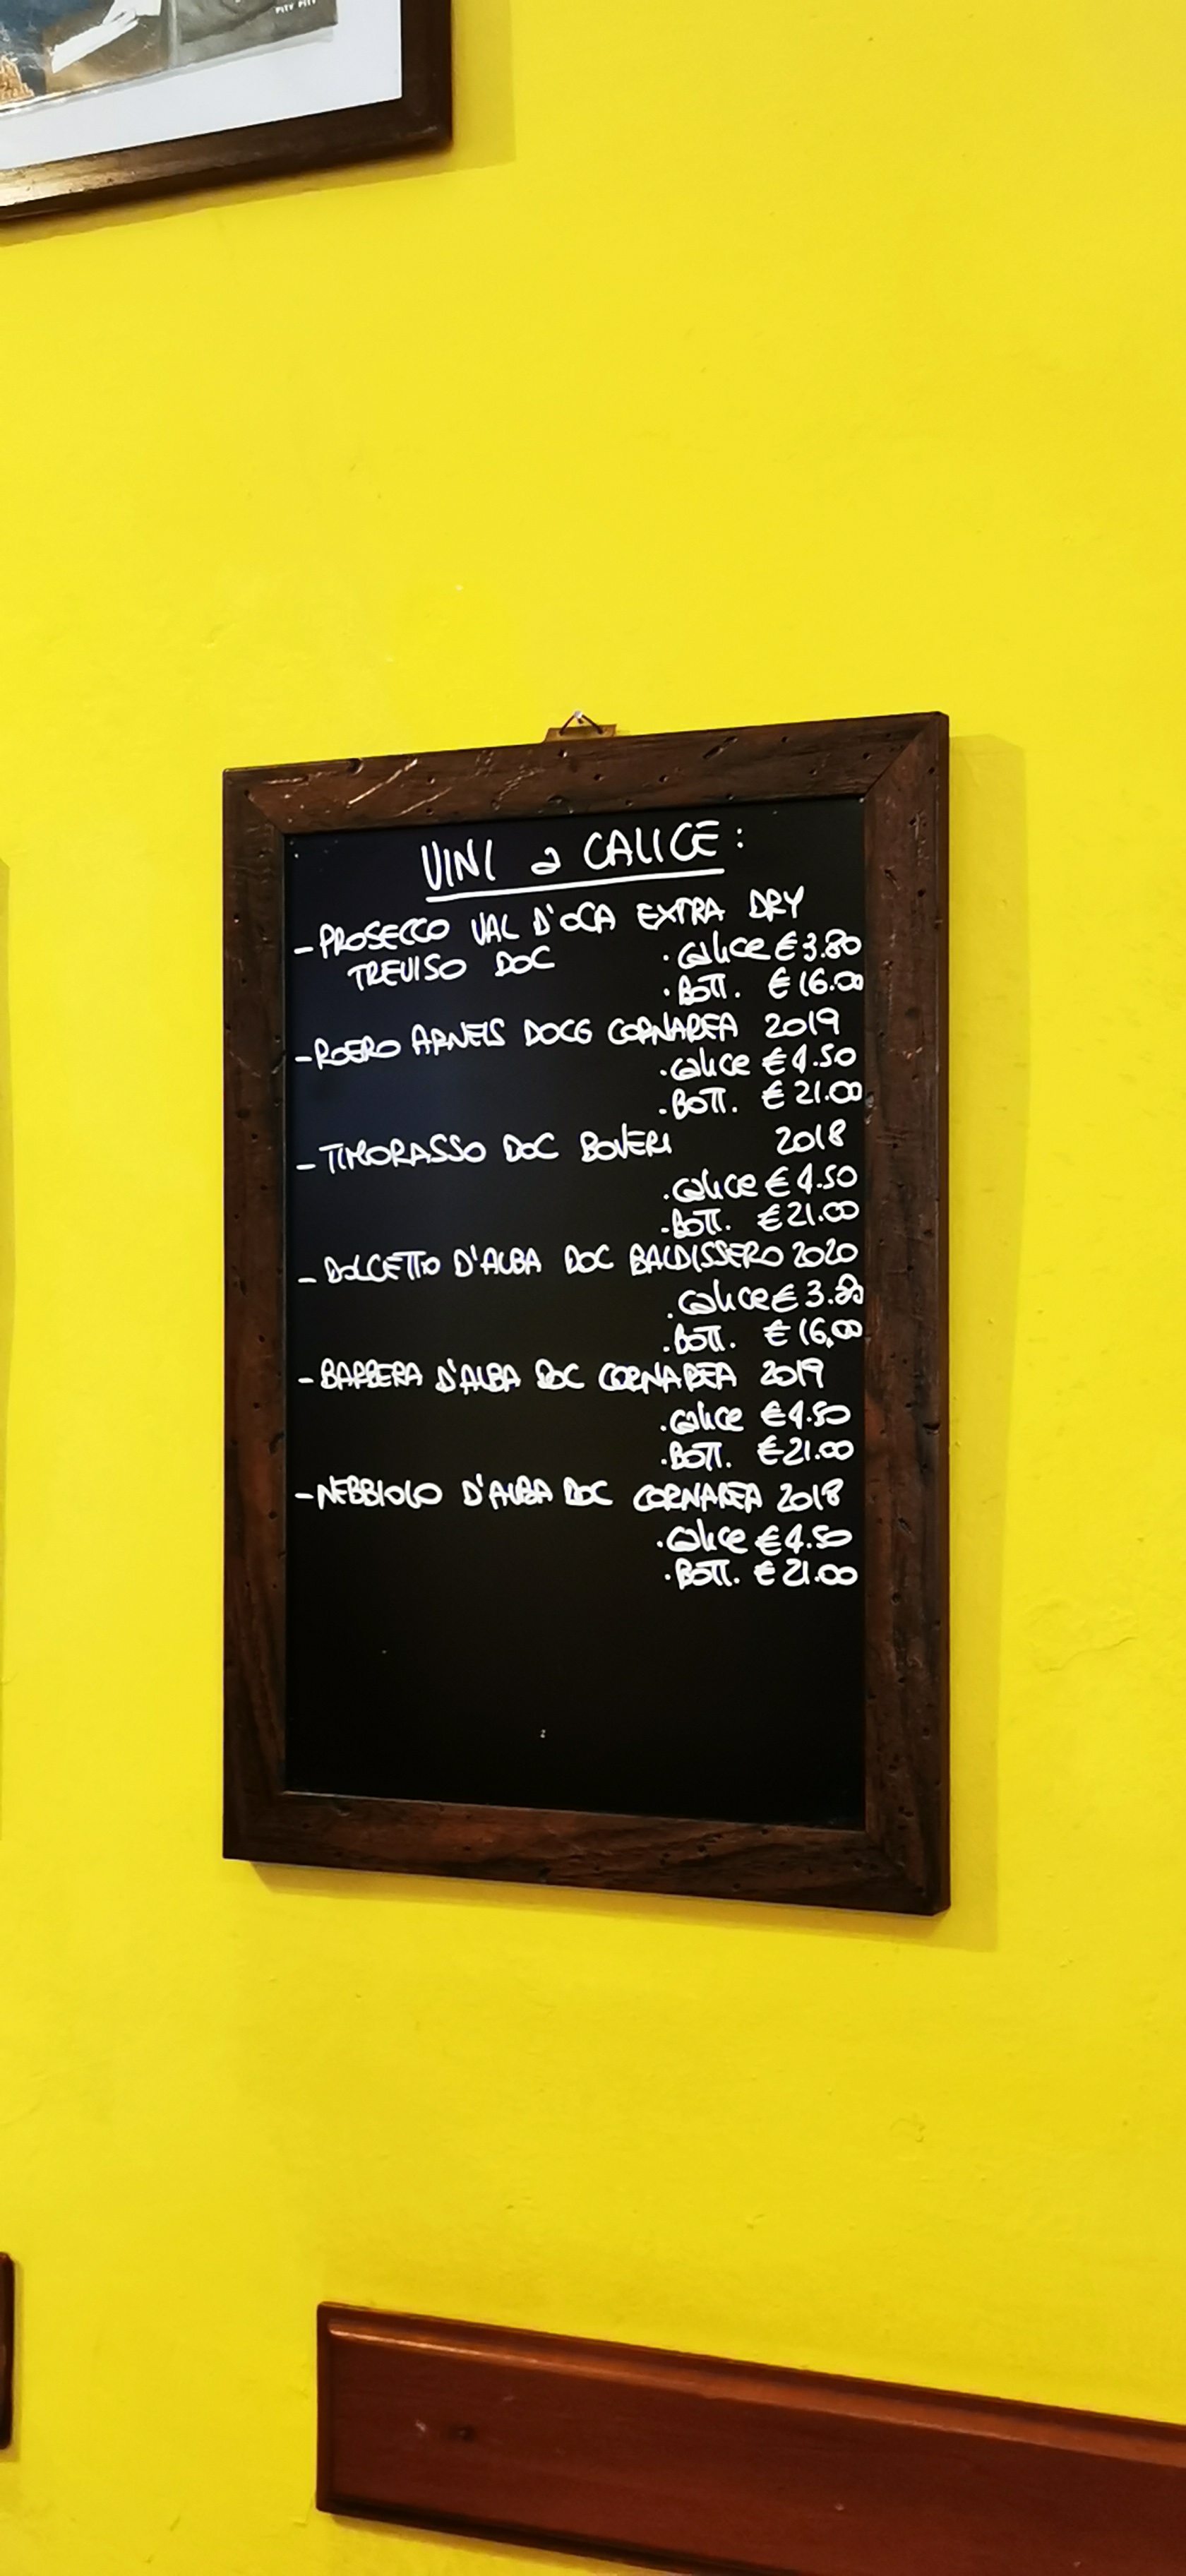 PITY PITY
VINI a CALICE:
- PROSECCO VAL D'OCA EXTRA DRY
TREVISO DOC . calice € 3.80
. BOTT. € 16.00
- ROERO ARNEIS DOCG CORNAREA 2019
. calice € 4.50
. BOTT. € 21.00
- TIMORASSO DOC BOVERI 2018
. calice € 4.50
. BOTT. € 21.00
- DOLCETTO D'ALBA DOC BALDISSERO 2020
. calice € 3.80
. BOTT. € 16,00
- BARBERA D'ALBA DOC CORNAREA 2019
. calice € 4.50
. BOTT. € 21.00
- NEBBIOLO D'ALBA DOC CORNAREA 2018
. calice € 4.50
. BOTT. € 21.00